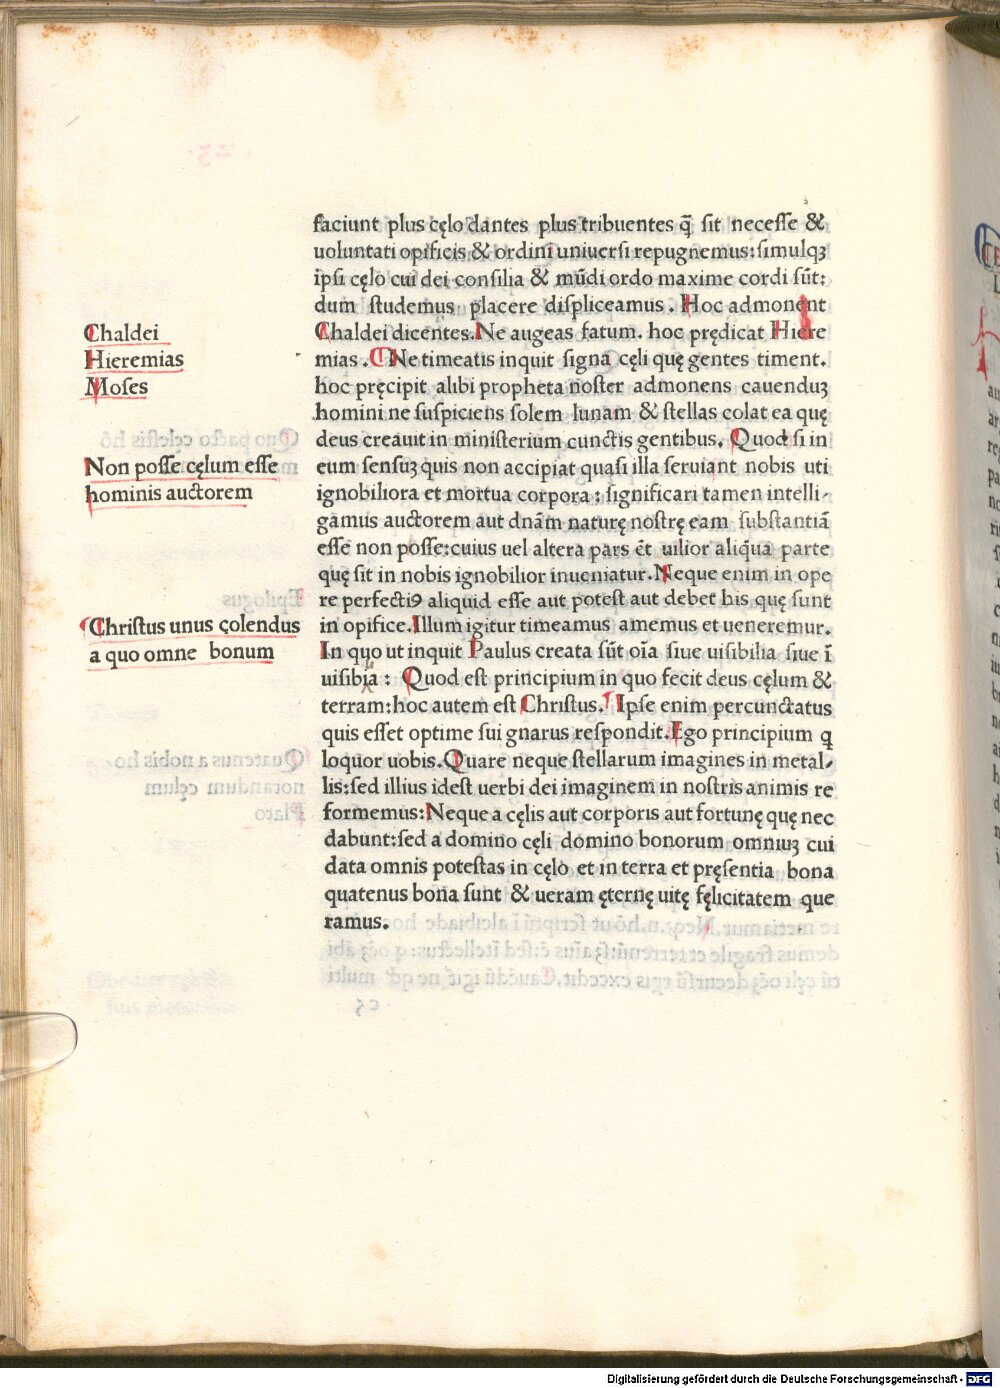 faciunt plus cęlo dantes plus tribuentes q̃ sit necesse &
uoluntati opificis & ordini uniuersi repugnemus: simulqꝫ
ipsi cęlo cui dei consilia & mũdi ordo maxime cordi sũt:
dum studemus placere displiceamus. Hoc admonent
Chaldei dicentes. Ne augeas fatum. hoc prędicat Hiere
mias. Ne timeatis inquit signa cęli quę gentes timent.
hoc pręcipit alibi propheta noster admonens cauenduꝫ
homini ne suspiciens solem lunam & stellas colat ea quę
deus creauit in ministerium cunctis gentibus. Quod si in
eum sensuꝫ quis non accipiat quasi illa seruiant nobis uti
ignobiliora et mortua corpora: significari tamen intelli-
gamus auctorem aut dñam naturę nostrę eam substantiã
esse non posse: cuius uel altera pars ẽt uilior aliq̃a parte
quę sit in nobis ignobilior inueniatur. Neque enim in ope
re perfectiꝰ aliquid esse aut potest aut debet his quę sunt
in opifice. Illum igitur timeamus amemus et ueneremur.
In quo ut inquit Paulus creata sũt oĩa siue uisibilia siue ĩ
uisibia: Quod est principium in quo fecit deus cęlum &
terram: hoc autem est Christus. Ipse enim percunctatus
quis esset optime sui gnarus respondit. Ego principium ꝗ
loquor uobis. Quare neque stellarum imagines in metal-
lis: sed illius idest uerbi dei imaginem in nostris animis re
formemus: Neque a cęlis aut corporis aut fortunę quę nec
dabunt: sed a domino cęli domino bonorum omniuꝫ cui
data omnis potestas in cęlo et in terra et pręsentia bona
quatenus bona sunt & ueram ęternę uitę fęlicitatem que
ramus.
Chaldei
Hieremias
Moses
Non posse cęlum esse
hominis auctorem
Christus unus çolendus
a quo omne bonum
Digitalisierung gefördert durch die Deutsche Forschungsgemeinschaft - DFG